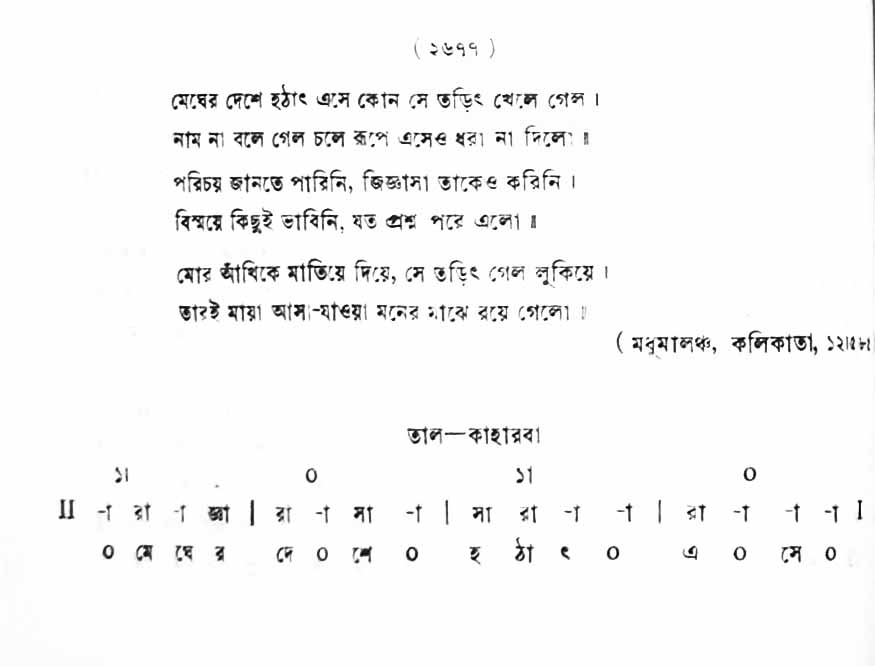 ( ২৬৭৭ )
মেঘের দেশে হঠাৎ এসে কোন সে তড়িৎ খেলে গেল ।
নাম না বলে গেল চলে রূপে এসেও ধরা না দিলো ॥
পরিচয় জানতে পারিনি, জিজ্ঞাসা তাকেও করিনি ।
বিস্ময়ে কিছুই ভাবিনি, যত প্রশ্ন পরে এলো ॥
মোর আঁখিকে মাতিয়ে দিয়ে, সে তড়িৎ গেল লুকিয়ে ।
তারই মায়া আসা-যাওয়া মনের মাঝে রয়ে গেলো ॥
( মধুমালঞ্চ, কলিকাতা,
তাল—কাহারবা
১া ০ ১া ০
II -া রা -া জ্ঞা | রা -া সা -া | সা রা -া -া | রা -া -া -া I
০ মে ঘে র দে ০ শে ০ হ ঠা ৎ ০ এ ০ সে ০